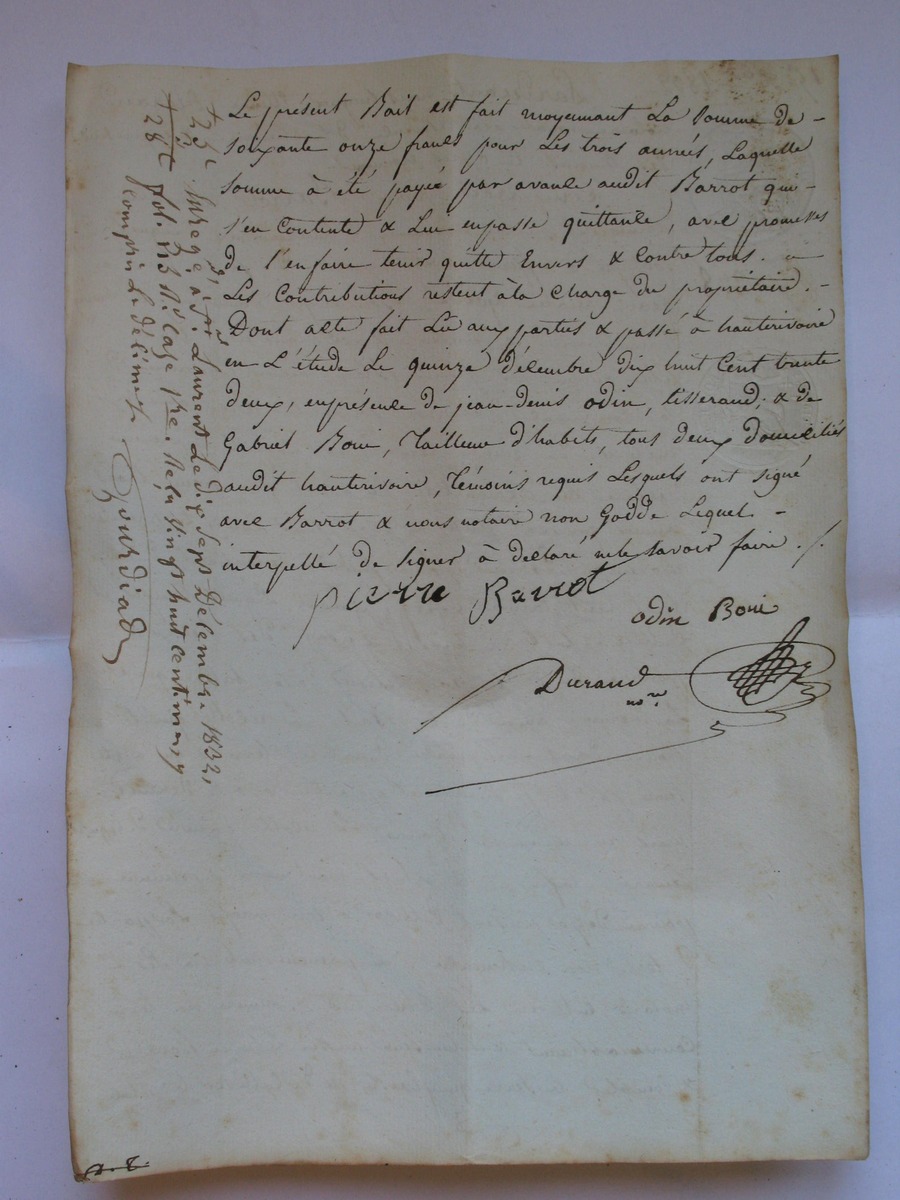 Le présent Bail est fait moyennant La Somme de -
soixante onze francs pour Les trois années, Laquelle
somme à été payée par avance audit Barrot qui -
s'en Contente & Lui enpasse quittance, avec promesses
de l'enfaire tenir quitte Envers & Contre tous.
Les Contributions restent àla Charge du propriétaire. -
Dont acte fait Lu aux parties & passé à hauterivoire
en L'étude Le quinze décembre dix huit Cent trente
deux, enprésence de jean-denis odin, tisserand, & de
Gabriel Boui, Tailleur d'habits, tous deux domiciliés
audit hauterivoire, Témoins requis Lesquels ont signé
avec Barrot & nous notaire non Godde Lequel -
interpellé de signer à déclaré nele savoir faire ./.
pierre Barrot
odin Boui
Durand
nore.
23 c
Enregé à St. Laurent Le dix Sept Décembre 1832,
fol. 113 Re. Case 1re. Reçu vingt huit centimes, y
28 c
compris Le décime